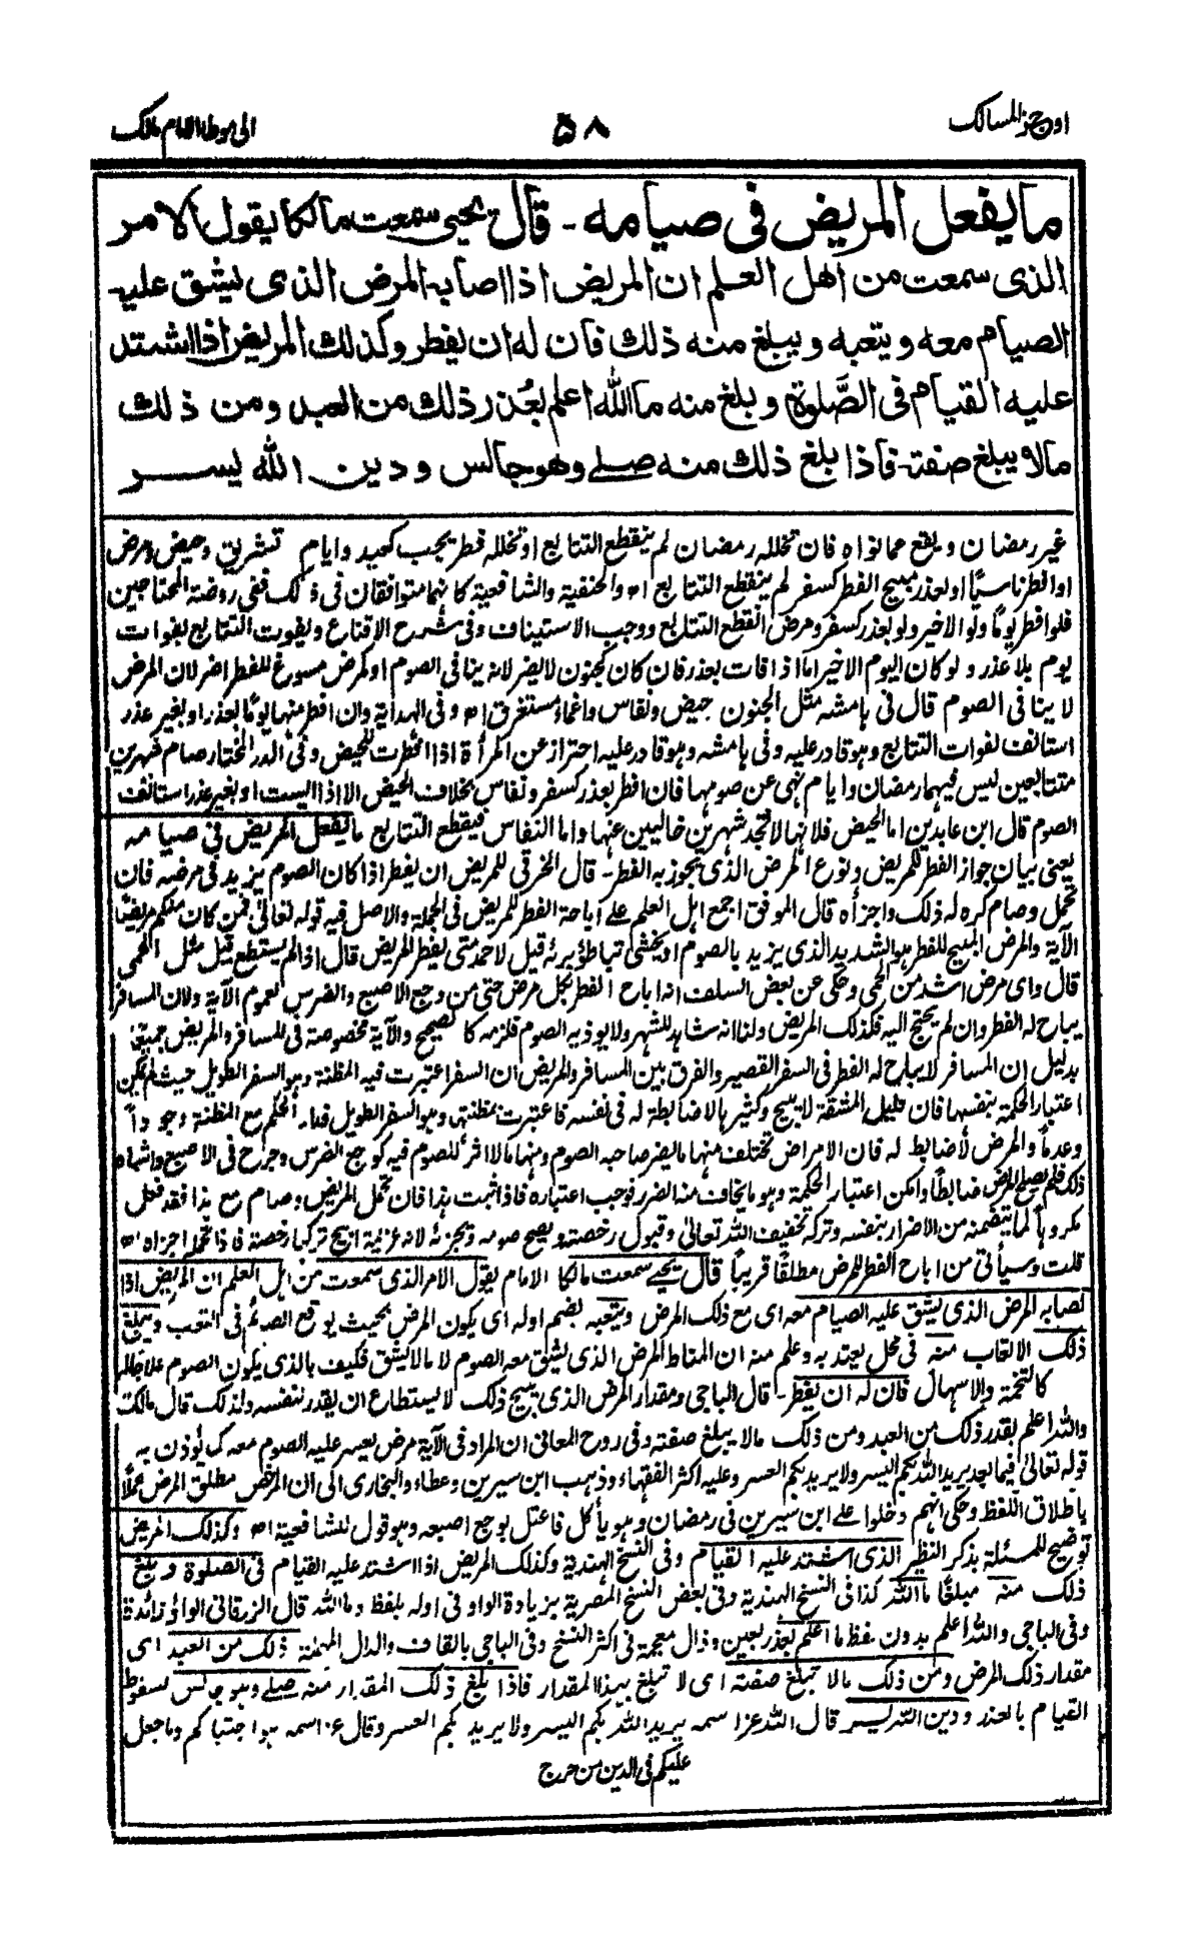 اوجز المسالك
٥٨
الى موطا الامام مالك
ما يفعل المريض فى صيامه - قال يحيى سمعت مالكا يقول الامر
الذى سمعت من اهل العلم ان المريض اذا اصابه المرض الذى يشق عليه
الصيام معه ويتعبه ويبلغ منه ذلك فان له ان يفطر وكذلك المريض اذا اشتد
عليه القيام فى الصَّلوة وبلغ منه ما الله اعلم بعُذر ذلك من العبد ومن ذلك
مالا يبلغ صفته فاذا بلغ ذلك منه صلے وهو جالس ودين الله يسر
غير رمضان ويقع عما نواه فان تخلله رمضان لم ينقطع التتابع او تخلله فطر يجب كعيد وايام تشريق وحيض ومرض
او افطر ناسيًا او لعذر مبيح الفطر كسفر لم ينقطع التتابع اه والحنفية والشافعية كانهما متوافقان فى ذلك ففى روضة المحتاجين
فلو افطر يومًا ولو الاخير ولو بعذر كسفر ومرض انقطع التتابع ووجب الاستيناف وفى شرح الاقناع ويفوت التتابع بفوات
يوم بلا عذر ولو كان اليوم الاخير اما اذا فات بعذر فان كان كجنون لا يضر لانه ينافى الصوم او كمرض مسوغ للفطر اضر لان المرض
لا ينافى الصوم قال فى هامشه مثل الجنون حيض ونفاس واغماء مستغرق اه وفى الهداية وان افطر منها يومًا بعذر او بغير عذر
استانف لفوات التتابع وهو قادر عليه وفى هامشه وهو قادر عليه احتراز عن المرأة اذا افطرت للحيض وفى الدر المختار صام شهرين
متتابعين ليس فيهما رمضان وايام نهى عن صومها فان افطر بعذر كسفر ونفاس بخلاف الحيض الا اذا ايست او بغير عذر استانف
الصوم قال ابن عابدين اما الحيض فلانها لا تجد شهرين خاليين عنها واما النفاس فيقطع التتابع ما يفعل المريض فى صيامه
يعنى بيان جواز الفطر للمريض ونوع المرض الذى يجوز به الفطر - قال الخرقى للمريض ان يفطر اذا كان الصوم يزيد فى مرضه فان
تحمل وصام كره له ذلك واجزأه قال الموفق اجمع اهل العلم على اباحة الفطر للمريض فى الجملة والاصل فيه قوله تعالى فمن كان منكم مريضًا
الآية والمرض المبيح للفطر هو الشديد الذى يزيد بالصوم او يخشى تباطؤ برئه قيل لاحمد متى يفطر المريض قال اذا لم يستطع قيل مثل الحمى
قال واى مرض اشد من الحمى وحكى عن بعض السلف انه اباح الفطر بكل مرض حتى من وجع الاصبع والضرس لعموم الآية ولان المسافر
يباح له الفطر وان لم يحتج اليه فكذلك المريض ولنا انه شاهد للشهر ولا يوذيه الصوم فلزمه كالصحيح والآية مخصوصة فى المسافر والمريض جميعًا
بدليل ان المسافر لا يباح له الفطر فى السفر القصير والفرق بين المسافر والمريض ان السفر اعتبرت فيه المظنة وهو السفر الطويل حيث لم يمكن
اعتبار الحكمة بنفسها فان قليل المشقة لا يبيح وكثيرها لا ضابطة له فى نفسه فاعتبرت بمظنتها وهو السفر الطويل فدار الحكم مع المظنة وجودًا
وعدمًا والمرض لا ضابط له فان الامراض تختلف منها ما يضر صاحبه الصوم ومنها ما لا اثر للصوم فيه كوجع الضرس وجرح فى الاصبع واشباه
ذلك فلم يصلح المرض ضابطًا وامكن اعتبار الحكمة وهو ما يخاف منه الضرر فوجب اعتباره فاذا ثبت هذا فان تحمل المريض وصام مع هذا فقد فعل
مكروهًا لما يتضمنه من الاضرار بنفسه وتركه تخفيف الله تعالى وقبول رخصته ويصح صومه ويجزئه لانه عزيمة ابيح تركها رخصة فاذا تحمله اجزاه اه
قلت وسيأتى من اباح الفطر للمرض مطلقًا قريبًا قال يحيے سمعت مالكا الامام يقول الامر الذى سمعت من اهل العلم ان المريض اذا
اصابه المرض الذى يشق عليه الصيام معه اى مع ذلك المرض ويتعبه بضم اوله اى يكون المرض بحيث يوقع الصائم فى التعب ويبلغ
ذلك الاتعاب منه فى محل يعتد به وعلم منه ان المناط المرض الذى يشق معه الصوم لا ما لا يشق فكيف بالذى يكون الصوم علاجًا له
كالتخمة والاسهال فان له ان يفطر - قال الباجى ومقدار المرض الذى يبيح ذلك لا يستطاع ان يقدر بنفسه ولذلك قال مالك
والله اعلم بقدر ذلك من العبد ومن ذلك مالا يبلغ صفته وفى روح المعانى ان المراد فى الآية مرض يعسر عليه الصوم معه كما يؤذن به
قوله تعالى فيما بعد يريد الله بكم اليسر ولا يريد بكم العسر وعليه اكثر الفقهاء وذهب ابن سيرين وعطاء والبخارى الى ان المرخص مطلق المرض عملًا
باطلاق اللفظ وحكى انهم دخلوا على ابن سيرين فى رمضان وهو يأكل فاعتل بوجع اصبعه وهو قول للشافعية اه وكذلك المريض
توضيح للمسئلة بذكر النظير الذى اشتد عليه القيام وفى النسخ الهندية وكذلك المريض اذا اشتد عليه القيام فى الصلوة وبلغ
ذلك منه مبلغًا ما الله كذا فى النسخ الهندية وفى بعض النسخ المصرية بزيادة الواو فى اوله بلفظ وما الله قال الزرقانى الواو زائدة
وفى الباجى والله اعلم بدون لفظ ما اعلم بعذر بعين وذال معجمة فى اكثر النسخ وفى الباجى بالقاف والدال المهملة ذلك من العبد اى
مقدار ذلك المرض ومن ذلك مالا تبلغ صفته اى لا تبلغ بهذا المقدار فاذا بلغ ذلك المقدار منه صلے وهو جالس لسقوط
القيام بالعذر ودين الله يسر قال الله عز اسمه يريد الله بكم اليسر ولا يريد بكم العسر وقال عز اسمه هو اجتباكم وما جعل
عليكم فى الدين من حرج